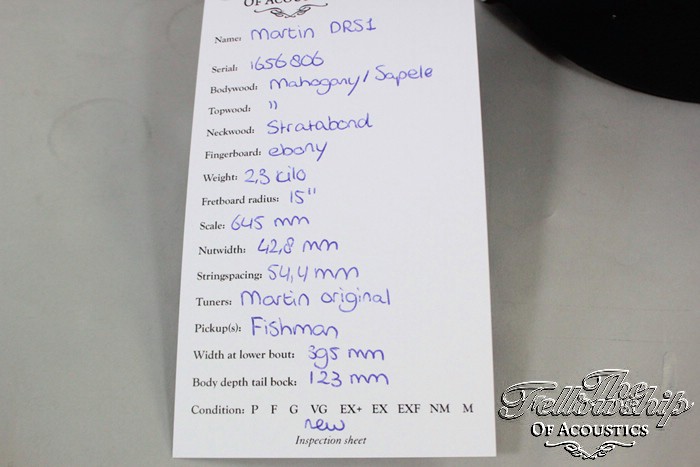 OF ACOUSTICS
Name: Martin DRS1
Serial: 1656806
Bodywood: Mahogany/Sapele
Topwood: "
Neckwood: Stratabond
Fingerboard: ebony
Weight: 2,3 kilo
Fretboard radius: 15"
Scale: 645 mm
Nutwidth: 42,8 mm
Stringspacing: 54,4 mm
Tuners: Martin original
Pickup(s): Fishman
Width at lower bout: 395 mm
Body depth tail bock: 123 mm
Condition: P F G VG EX+ EX EXF NM M
new
Inspection sheet
The
Fellowship
OF ACOUSTICS